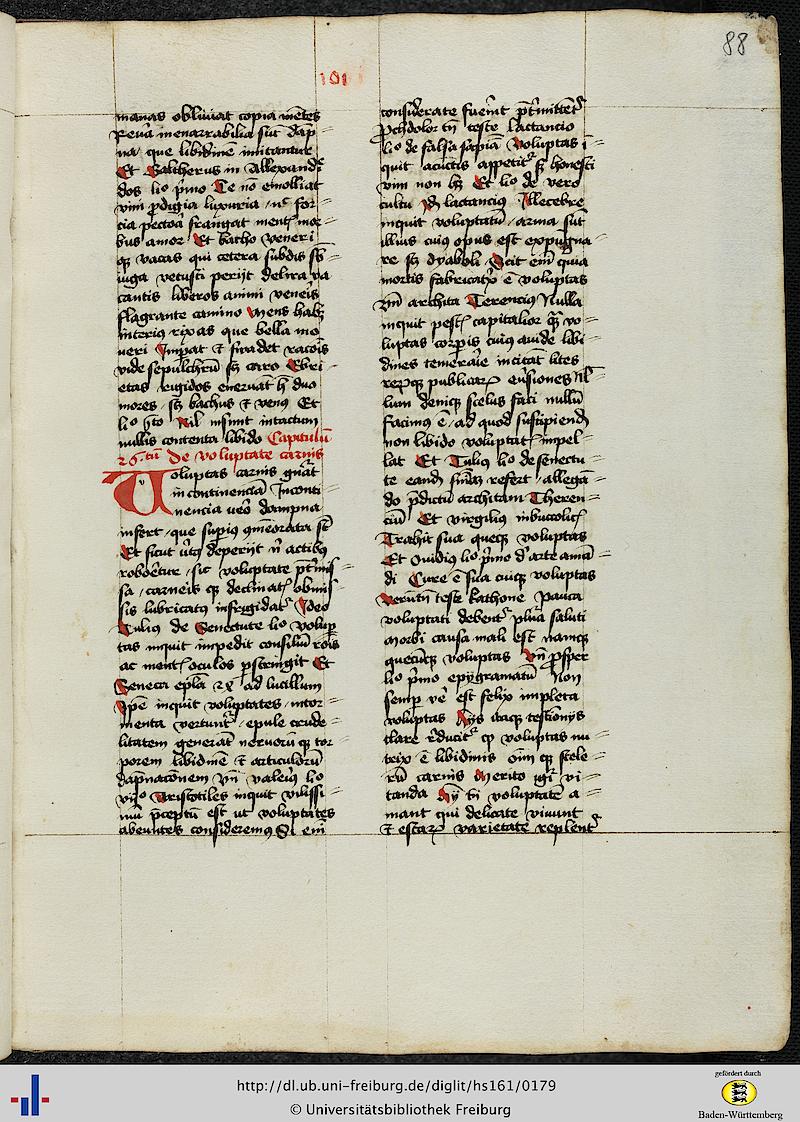 88
101
manas obliuiat copia mētes
Reuā inenarrabilia sūt dāp
na que libidinē imitantur
Et Galtherus in Allexandr̄
dos lio p̄mo Te nō emolliat
vini ꝓdigia luxuria nc̄ for
cia pectorā frangat ment mor
bus amor Et bacho veneri
qꝫ vacas qui cetera subdis sb̄
iuga vetusti perijt delira va
cantis liberos animi veneris
flagrante camino Mens habꝫ
interiꝯ rixas que bella mo
ueri Impat ⁊ suadet racōis
vide sepulchrū sꝫ caro Ebri
etas rigidos eneruāt h̄ duo
mores sꝫ bachus ⁊ venꝯ Et
lio sto Nil insunt intactum
nullis contenta libido Capitulū
26tū de voluptate carnis
Voluptas carnis gn̄āt
incontinenciā Inconti
nencia uēo dampna
infert que supiꝯ ꝯmēorata st̄
Et sicut v̄tꝯ deperijt ī actibꝯ
roborētur sic voluptate p̄tmis
sa carneis qꝫ declinat obmis
sis lubricatꝯ infrigidat Ideo
Tulius de Senectute lio volup
tas inquit impedit consiliū rōis
ac ment oculos pstringit Et
Seneca ep̄la 2x ad lucillum
Ipē inquit voluptates intor
menta vertunt epule crude
litatem generāt neruorū qꝫ tor
porem libidinē ⁊ articulorū
dapnacōnem Vn̄ valerꝯ lio
vijo Aristotiles inquit vilissi
mū p̄ceptū est ut voluptates
abeuntes consideremꝯ Si em̄
considerate fuerint p̄tmittent
ꝓchdolor tn̄ teste lactancio
lio de falsa sapīa Voluptas ī
quit acutis appetit sꝫ honesti
vim non hꝫ Et lio de vero
cultu Dꝫ lactancius Illecebre
inquit voluptatū arma sūt
illius cuiꝯ opus est expugna
re sꝫ dyaboli Scit em̄ quia
mortis fabricatrix ē voluptas
Vn̄ archita Terencius Nulla
inquit pest capitalior qꝫ vo
luptas corpis cuiꝯ auide libi
dines temerarie incitat lites
rerqꝫ publicarꝫ euersiones Nl̄
lum deniqꝫ scelus facti nullū
facinus ē ad quod suscipiend
non libido voluptat impel
lat Et Tuliꝯ lio de senectu
te eandē sn̄iaꝫ refert allega
do p̄dictū architam Theren
ciū Et virgilius in bucolic
Trahit sua quēqꝫ voluptas
Et Ouidiꝯ lio p̄mo d' arte amā
di Cure ē sua cuiqꝫ voluptas
Verutn̄ teste kathone Pauca
voluptati debent plura saluti
Morbi causa mali est namqꝫ
quecūqꝫ voluptas Vn̄ ꝓsper
lio p̄mo epygramatū Non
semp vē est felix impleta
voluptas Hys itaqꝫ testīonys
clare r̄ducit qꝫ voluptas nu
trix ē libidinis oīm qꝫ scele
rū carnis Merito igr̄ vi
tanda Hij tn̄ voluptatē a
mant qui delicate viuunt
⁊ escarꝫ varietate replent
http://dl.ub.uni-freiburg.de/diglit/hs161/0179
© Universitätsbibliothek Freiburg
gefördert durch
Baden-Württemberg